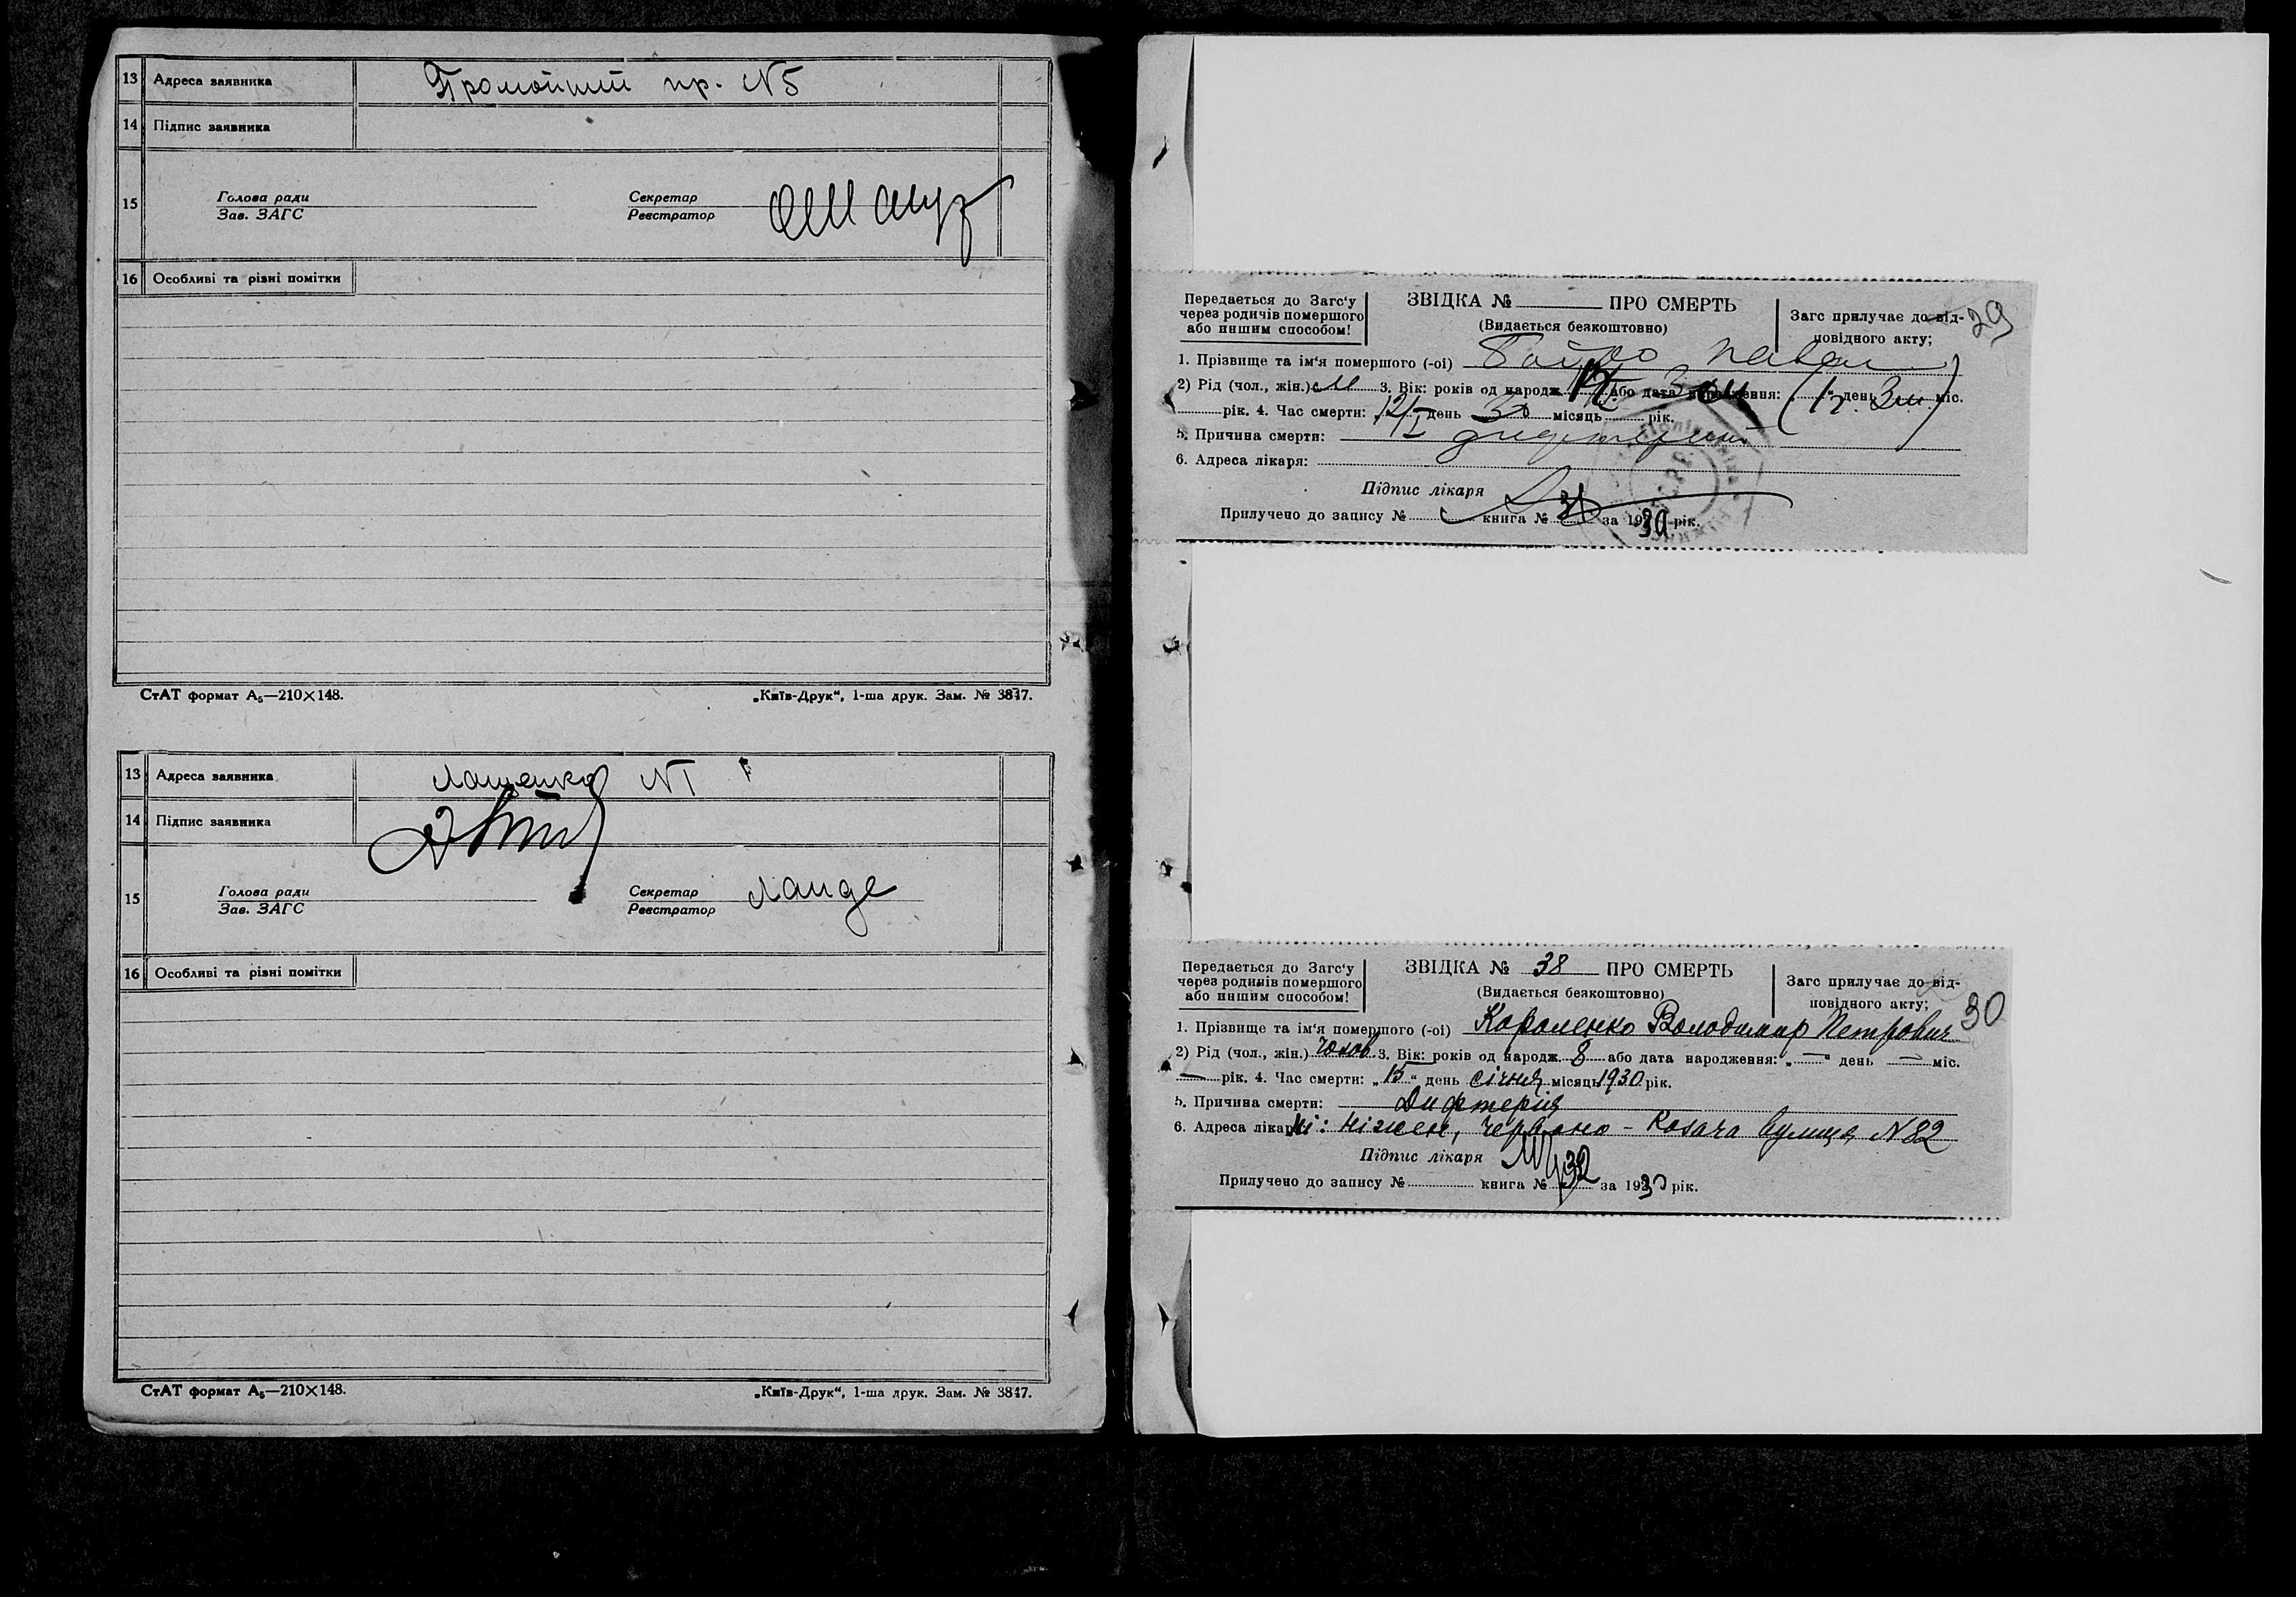 13 Адреса заявника пр. №5
14 Підпис заявника
15 Голова ради Секретар
Зав. ЗАГС Реєстратор
16 Особливі та різні помітки
СтАТ формат А5—210×148. „Київ-Друк“, 1-ша друк. Зам. № 3847.
13 Адреса заявника Лащенко №1
14 Підпис заявника
15 Голова ради Секретар Ланде
Зав. ЗАГС Реєстратор
16 Особливі та різні помітки
СтАТ формат А5—210×148. „Київ-Друк“, 1-ша друк. Зам. № 3847.
29
Передається до Загс'у
через родичів помершого
або иншим способом!
ЗВІДКА № ПРО СМЕРТЬ
(Видається безкоштовно)
Загс прилучає до від-
повідного акту;
1. Прізвище та ім'я помершого (-ої) Павел
2) Рід (чол., жін.) М 3. Вік: років од народж. або дата народження: „ “ день міс. (1 г. 3 м)
рік. 4. Час смерти: 12/I день 30 місяць рік.
5. Причина смерти:
6. Адреса лікаря:
Підпис лікаря
Прилучено до запису № книга № 31 за 1930 рік.
30
Передається до Загс'у
через родичів помершого
або иншим способом!
ЗВІДКА № 38 ПРО СМЕРТЬ
(Видається безкоштовно)
Загс прилучає до від-
повідного акту;
1. Прізвище та ім'я помершого (-ої) Короленко Володимир Петрович
2) Рід (чол., жін.) Чолов. 3. Вік: років од народж. 8 або дата народження: „—“ день — міс.
— рік. 4. Час смерти: „15“ день січня місяць 1930 рік.
5. Причина смерти: Дифтерія
6. Адреса лікарні: Ніжен, Червоно-Козача вулиця №82
Підпис лікаря
Прилучено до запису № книга № 32 за 1930 рік.